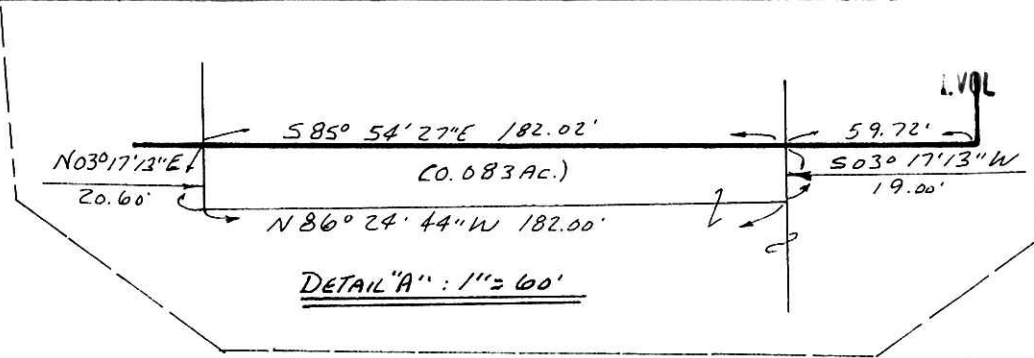 1.VOL
S 85° 54' 27"E 182.02'
59.72'
N03°17'13"E
20.60'
(0.083 Ac.)
S03° 17'13"W
19.00'
N 86° 24' 44"W 182.00'
DETAIL "A" : 1" = 60'